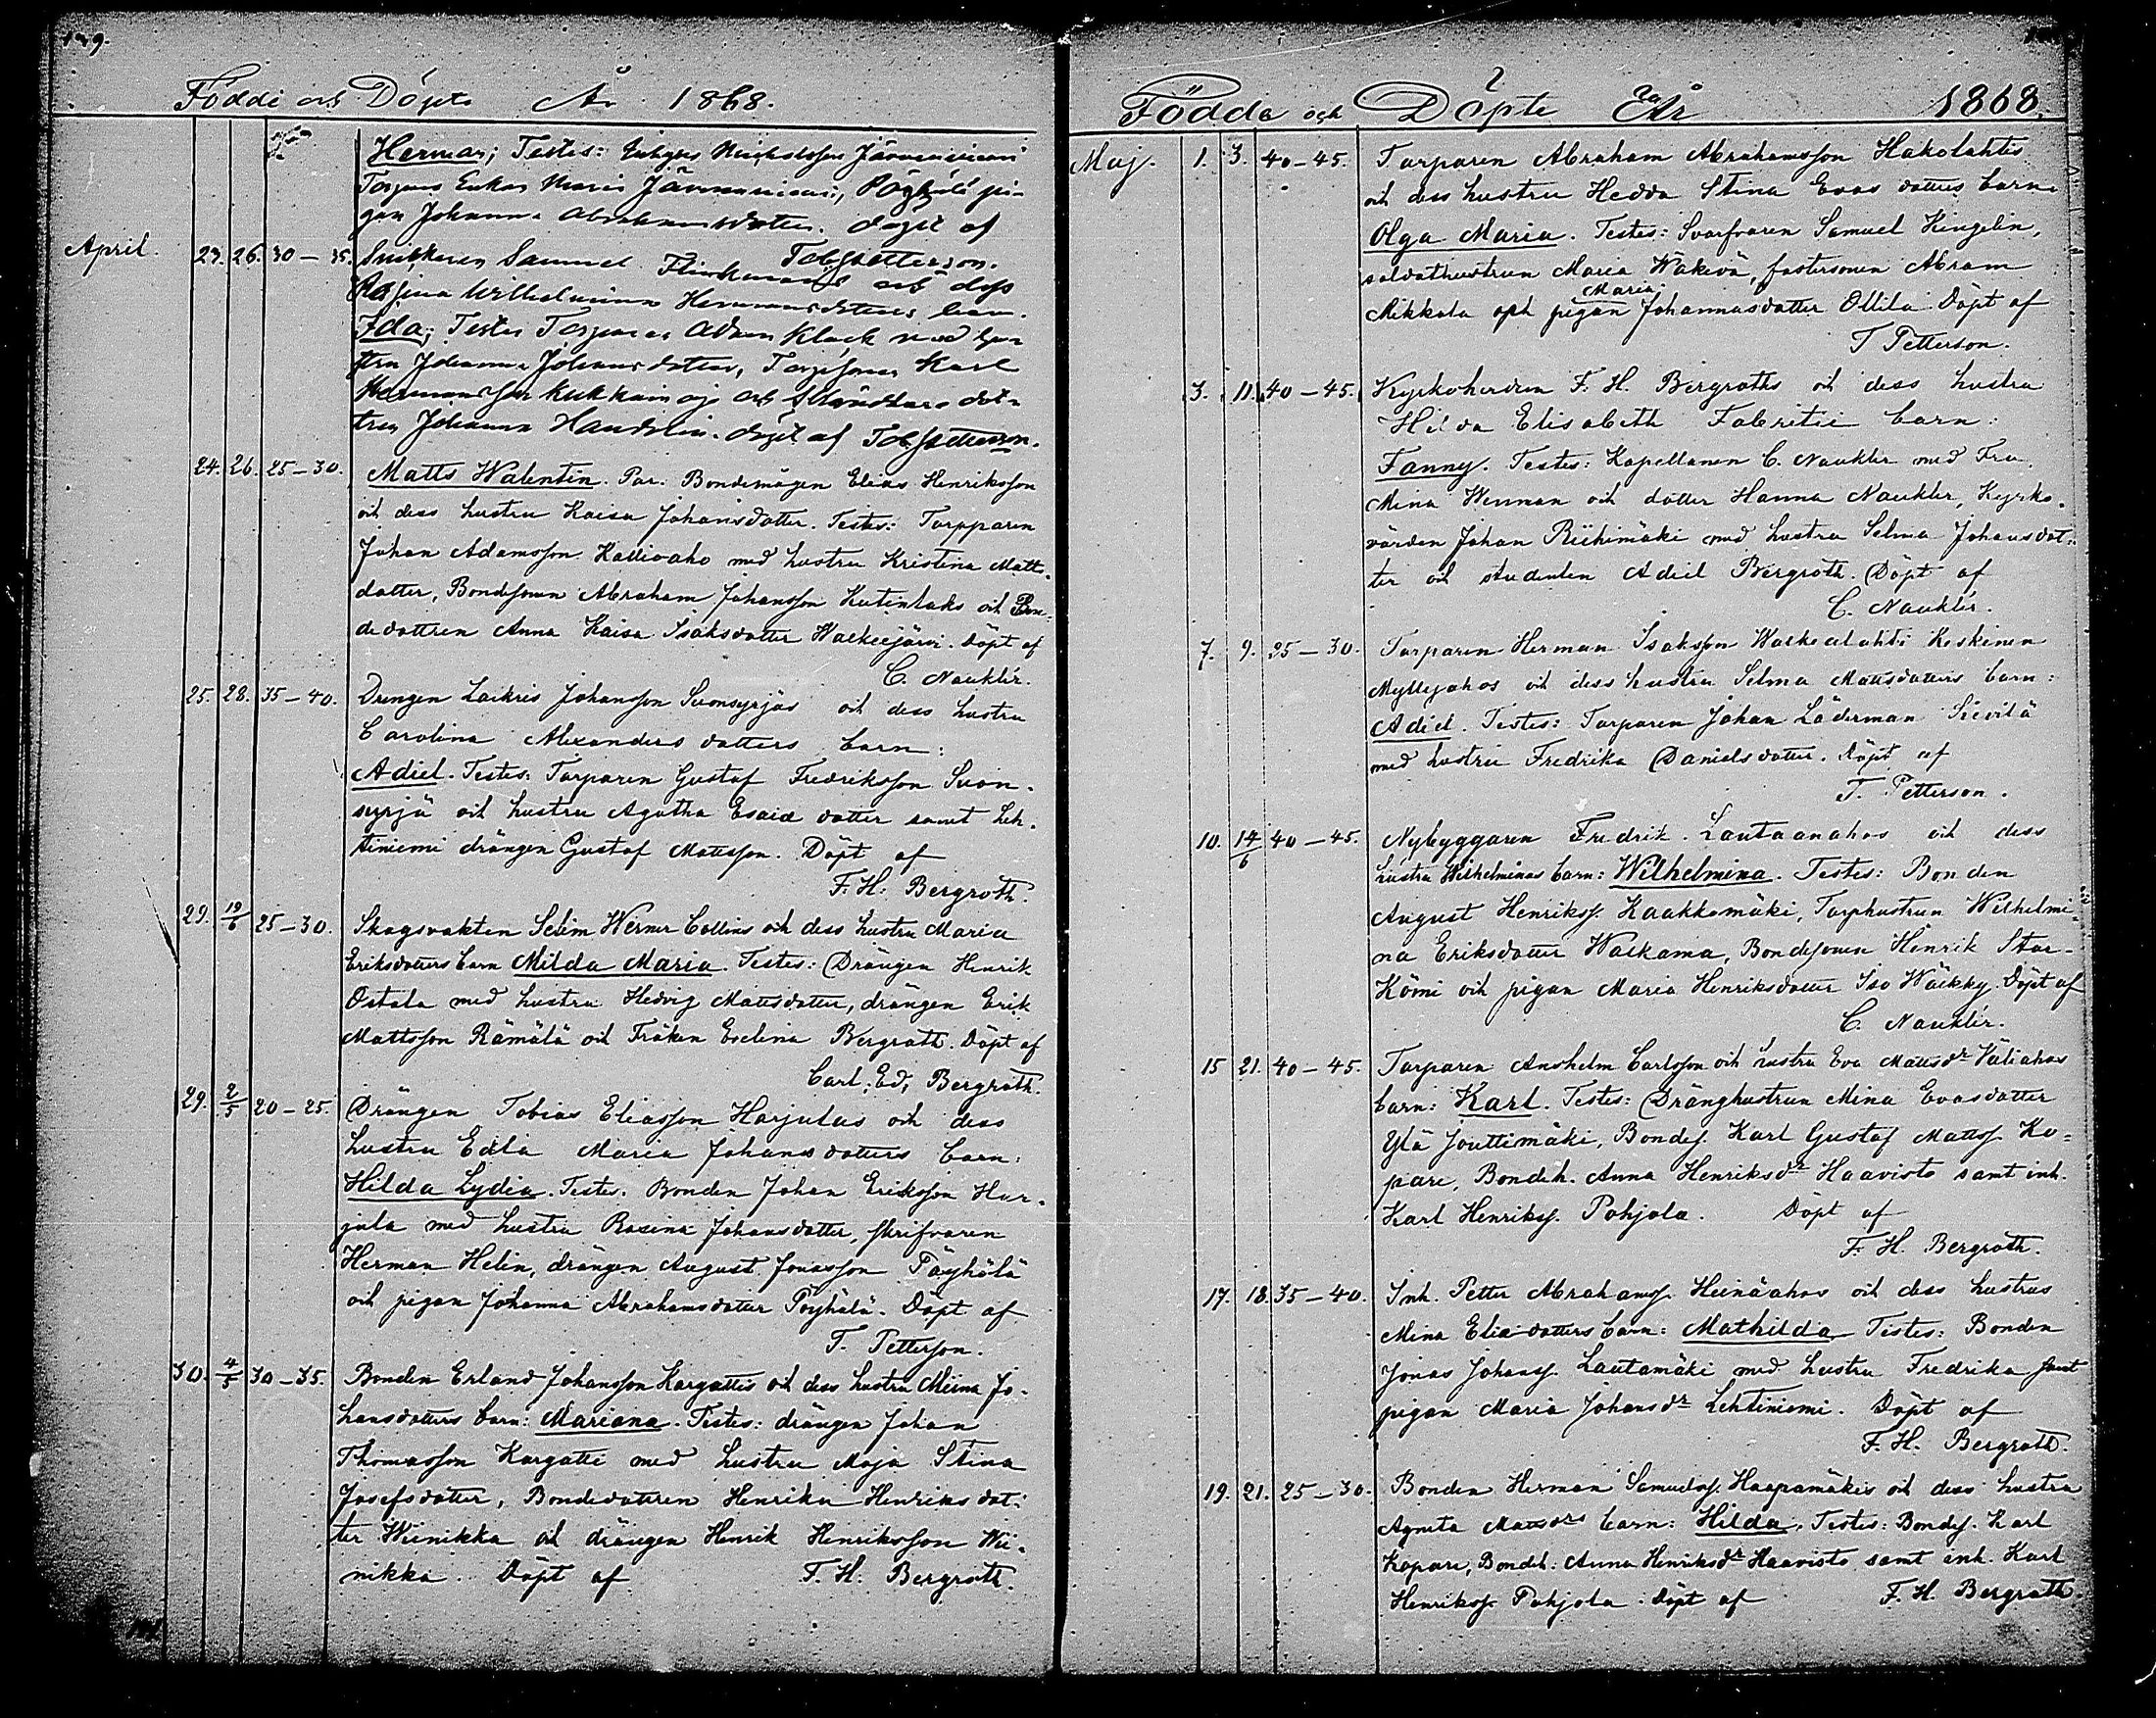 Födde och Döpte År 1868.
Herman; Testes:
Torpars Enkan Maria Pöyhölä pi-
gan Johanna Abrahamsdotter. Döpt af
Tob. Petterson.
April. 23. 26. 30–35. Snickaren Samuel och dess
Regina Wilhelmina Hermansdotters barn.
Ida; Testes Torparen Adam Klack med hu-
stru Johanna Johansdotter, Karl
Hermansson Kukkainoja och dot-
tren Johanna Handolin. döpt af Tob Petterson.
24. 26. 25–30. Matts Walentin. Par. Bondemågen Elias Henriksson
och dess hustru Kaisa Johansdotter. Testes: Torpparen
Johan Adamsson Kallioaho med hustru Kristina Matts-
dotter, Bondesonen Abraham Johansson och Bon-
dedottren Anna Kaisa Isaksdotter Walkeejärvi. Döpt af
C. Nauklér.
25. 28. 35–40. Drengen Zackris Johansson Suonsyrjäs och dess hustru
Carolina Alexanders dotters barn:
Adiel. Testes: Torparen Gustaf Fredriksson Suon-
syrjä och hustru Agatha Esaiæ dotter samt Leh-
tiniemi drängen Gustaf Mattsson. Döpt af
F. H. Bergroth.
29. 19/6 25–30. Skogsvakten Selim Werner Collins och dess hustru Maria
Eriksdotters barn Milda Maria. Testes: Drängen Henrik
Ostola med hustru Hedvig Mattsdotter, drängen Erik
Mattsson Rämälä och Fröken Evelina Bergroth. Döpt af
Carl. Ed. Bergroth.
29. 2/5 20–25. Drängen Tobias Eliasson Harjulas och dess
hustru Edla Maria Johans dotters barn:
Hilda Lydia. Testes. Bonden Johan Eriksson Har-
jula med hustru Rosina Johansdotter, skrifvaren
Herman Helin, drängen August Jonasson Pöyhölä
och pigan Johanna Abrahamsdotter Pöyhölä. Döpt af
T. Petterson.
30. 4/5 30–35. Bonden Erland Johansson Kargattis och dess hustru Miina Jo-
hansdotters barn: Mariana. Testes: drängen Johan
Thomasson Kargatti med hustru Maja Stina
Josefsdotter, Bondedottren Henrika Henriks dot-
ter Wiinikka och drängen Henrik Henriksson Wii-
nikka. Döpt af F. H. Bergroth.
Födda och Döpte År 1868.
Maj. 1. 3. 40–45. Torparen Abraham Abrahamsson Hakolahtis
och dess hustru Hedda Stina Evas dotters barn.
Olga Maria. Testes: Svarfvaren Samuel Kingelin,
soldathustrun Maria Wäkevä, fostersonen Abram
Mikkola och pigan Maria Johannasdotter Ollila. Döpt af
T Petterson.
3. 11. 40–45. Kyrkoherden F. H. Bergroths och dess hustru
Hilda Elisabeth Fabritii barn:
Fanny. Testes: Kapellanen C. Nauklér med Fru
Mina Wenman och dotter Hanna Nauklér, Kyrko-
värden Johan Riihimäki med hustru Selma Johansdot-
ter och studenten Adiel Bergroth. Döpt af
C. Nauklér.
7. 9. 25–30. Torparen Herman Isaksson Walkealahti Keskinen
Myllyahos och dess hustru Selma Mattsdotters barn:
Adiel. Testes: Torparen Johan Läderman Sievilä
med hustru Fredrika Danielsdotter. Döpt af
T. Petterson.
10. 14/6 40–45. Nybyggaren Fredrik Lautaanahos och dess
hustru Wilhelminas barn: Wilhelmina. Testes: Bonden
August Henrikss. Kaakkomäki, Torphustrun Wilhelmi-
na Eriksdotter Waskama, Bondesonen Henrik Stor-
Kömi och pigan Maria Henriksdotter Iso Wäkky. Döpt af
C. Nauklér.
15 21. 40–45. Torparen Anshelm Carlsson och hustru Eva Mattsdr Väliahos
barn: Karl. Testes: Dränghustrun Mina Evasdotter
Ylä Jouttimäki, Bondes. Karl Gustaf Mattss. Ko-
pare, Bondeh. Anna Henriksdr Haavisto samt inh.
Karl Henrikss. Pohjola. Döpt af
F. H. Bergroth.
17. 18. 35–40. Inh. Petter Abrahamss. Heinäahos och dess hustrus
Mina Eliædotters barn: Mathilda. Testes: Bonden
Jonas Johanss. Lautamäki med hustru Fredrika samt
pigan Maria Johansdr Lehtiniemi. Döpt af
F. H. Bergroth.
19. 21. 25–30. Bonden Herman Samuelss. Haapamäkis och dess hustru
Agneta Mattsdrs barn: Hilda. Testes: Bondes. Karl
Kopare, Bondeh. Anna Henriksdr Haavisto samt inh. Karl
Henrikss. Pohjola. Döpt af F. H. Bergroth.